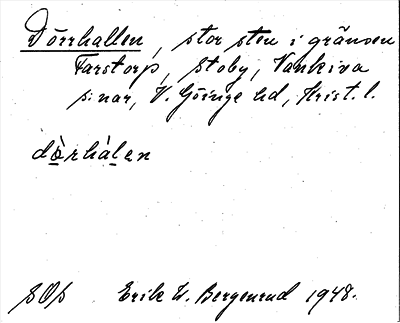 Dörrhallen, stor sten i gränsen
Farstorp, Stoby, Vankiva
s:nar, V. Göinge hd, Krist. l.
dörhàlen
SOS Erik W. Bergenrud 1948.